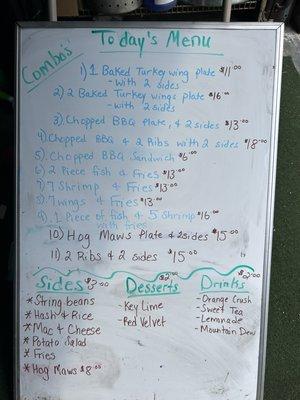 Today's Menu
Combo's
1) 1 Baked Turkey wing plate $11.00
- with 2 sides
2) 2 Baked Turkey wings plate $16.00
- with 2 sides
3) Chopped BBQ Plate, & 2 sides $13.00
4) Chopped BBQ & 2 Ribs with 2 sides $18.00
5) Chopped BBQ Sandwich $6.00
6) 2 Piece fish & Fries $13.00
7) 7 Shrimp & Fries $13.00
8) 7 wings & Fries $13.00
9) 1 Piece of fish & 5 Shrimp $16.00
with fries
10) Hog Maws Plate & 2 sides $15.00
11) 2 Ribs & 2 sides $15.00
Sides $3.00
* String beans
* Hash & Rice
* Mac & Cheese
* Potato Salad
* Fries
* Hog Maws $8.00
Desserts
- Key Lime
- Red Velvet
Drinks $2.00
- Orange Crush
- Sweet Tea
- Lemonade
- Mountain Dew